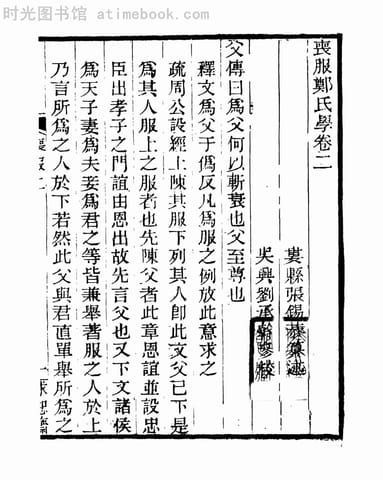 时光图书馆 - atimebook.com
喪服鄭氏學卷二
婁縣張錫
吳興劉承幹參校
父傳曰爲父何以斬衰也父至尊也
釋文爲父于僞反凡爲服之例放此意求之
疏周公設經上陳其服下列其人卽此文父已下是
爲其人服上之服者也先陳父者此章恩誼並設忠
臣出孝子之門誼由恩出故先言父也又下文諸侯
爲天子妻爲夫妾爲君之等皆兼舉著服之人於上
乃言所爲之人於下若然此父與君直單舉所爲之